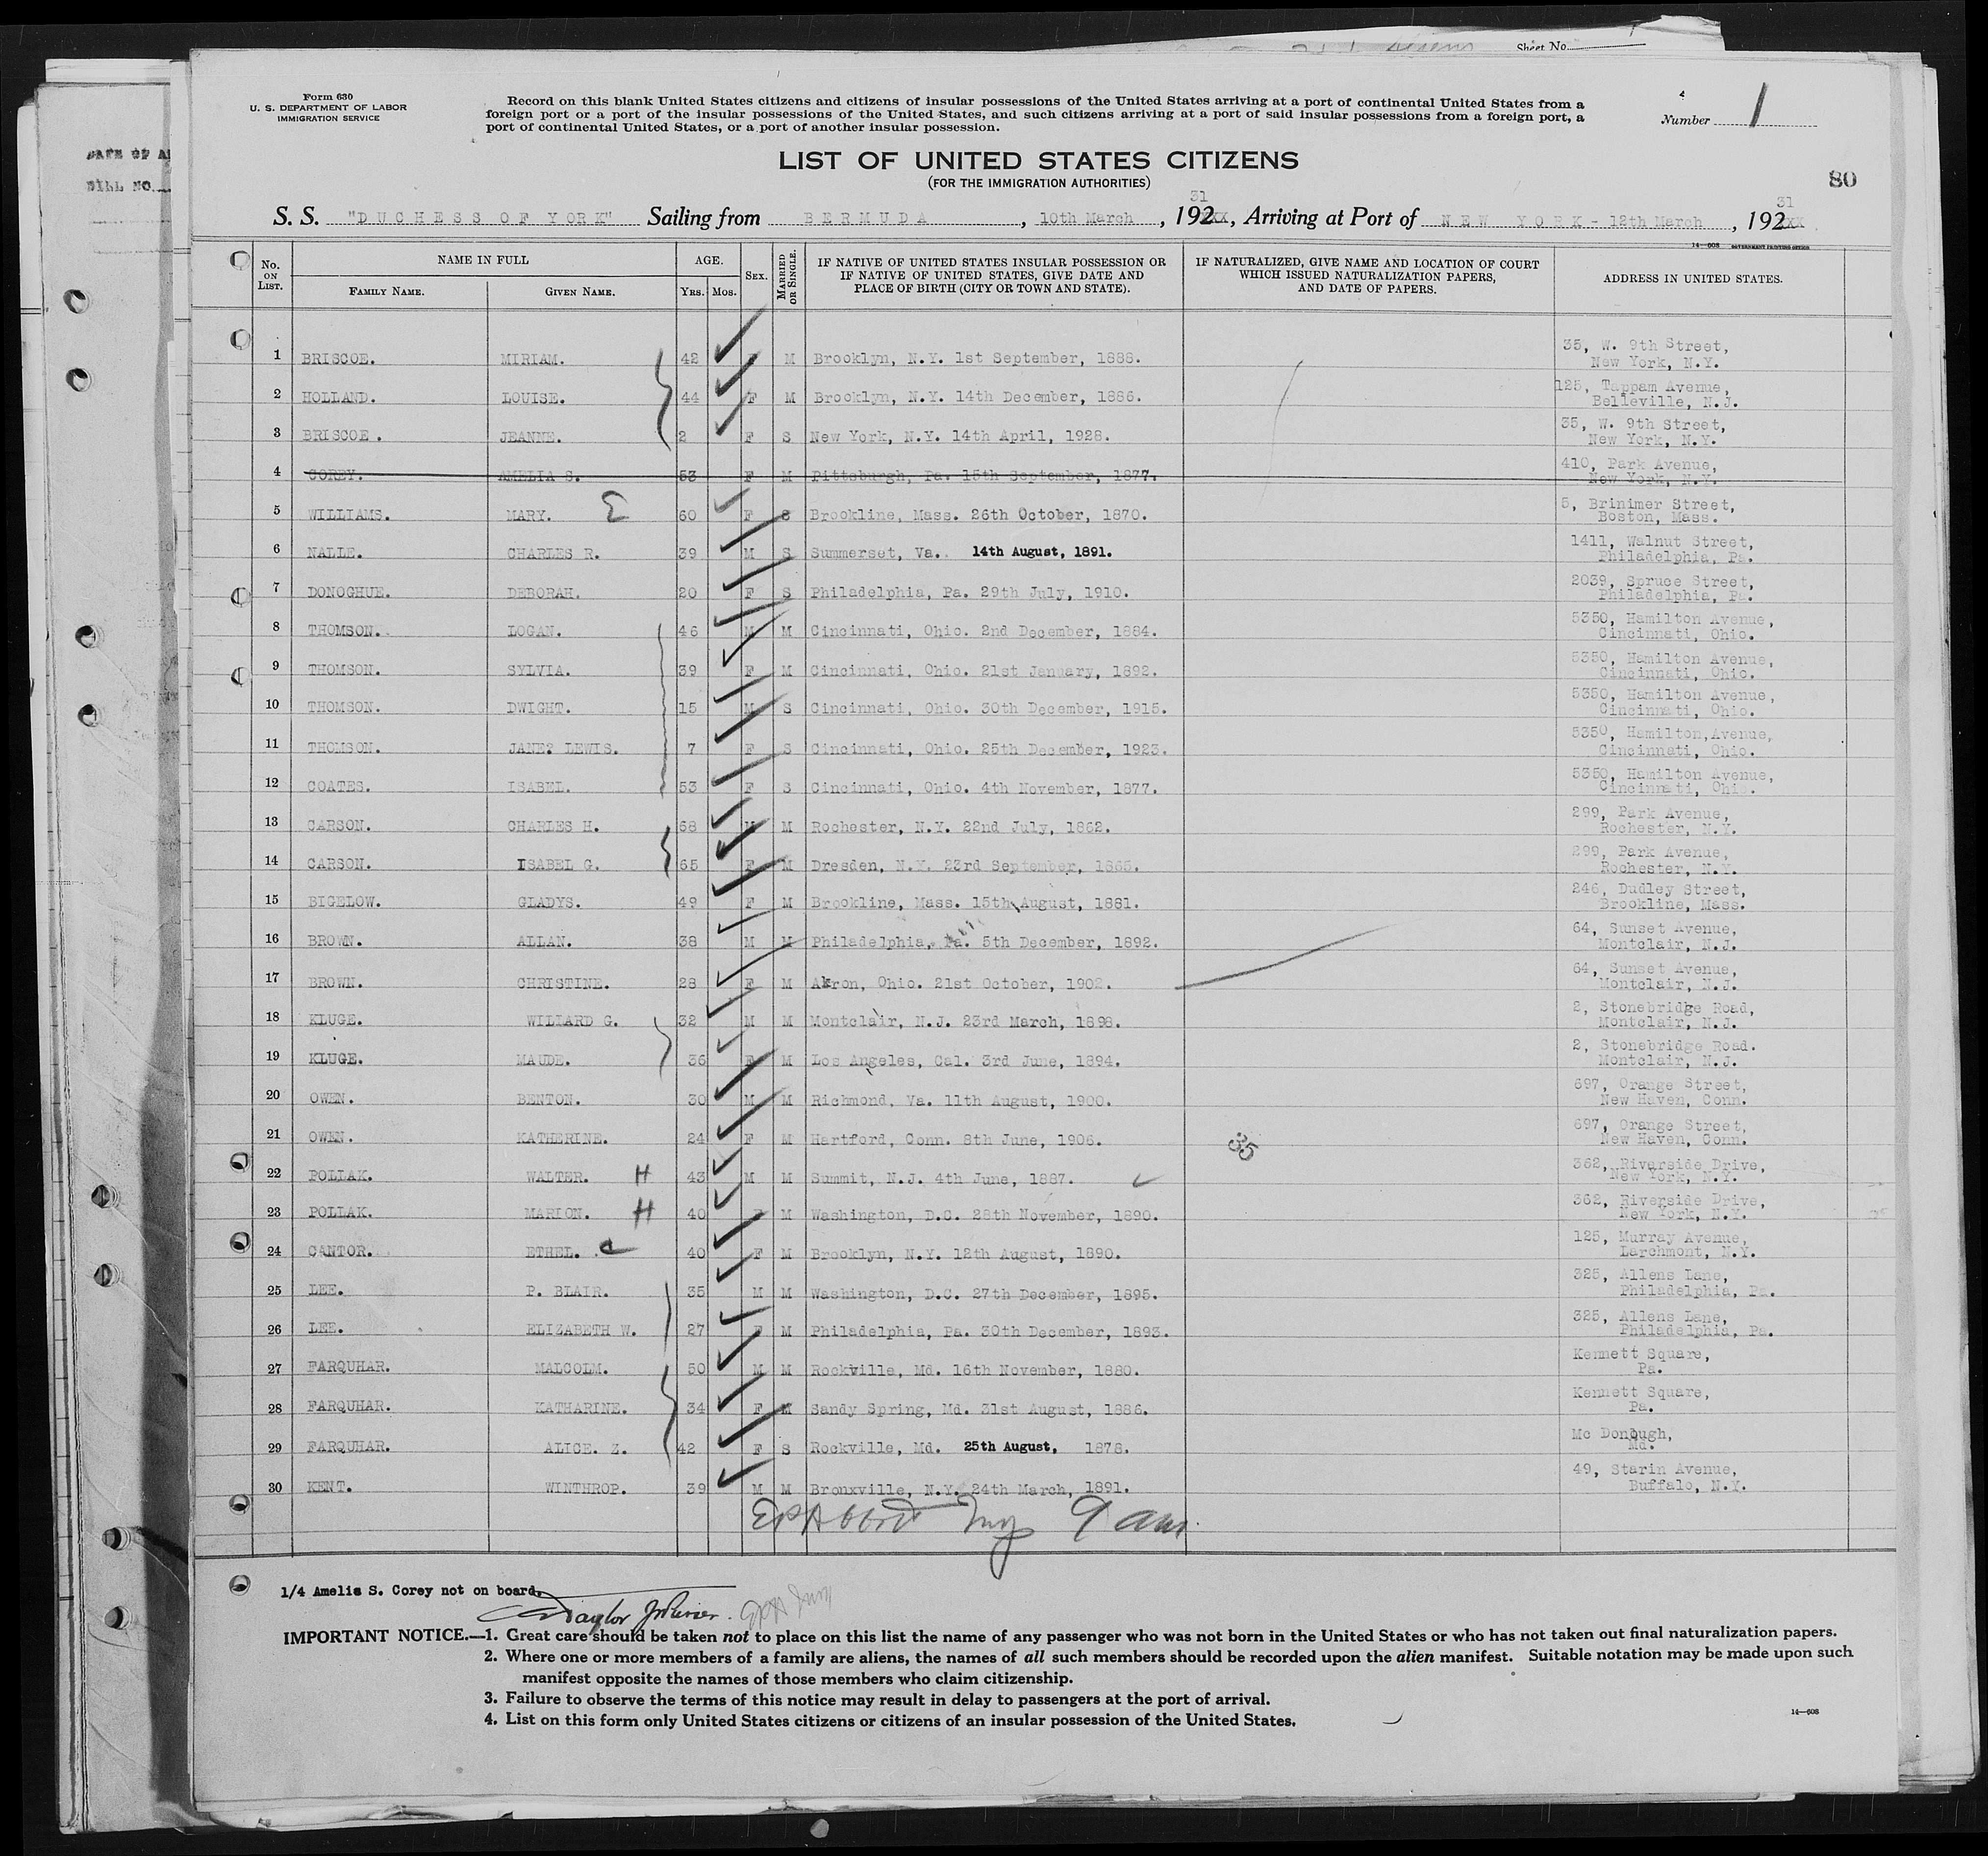 Sheet No.
DATE OF A
BILL NO.
Form 630
U. S. DEPARTMENT OF LABOR
IMMIGRATION SERVICE
Record on this blank United States citizens and citizens of insular possessions of the United States arriving at a port of continental United States from a
foreign port or a port of the insular possessions of the United States, and such citizens arriving at a port of said insular possessions from a foreign port, a
port of continental United States, or a port of another insular possession.
Number 1
LIST OF UNITED STATES CITIZENS
(FOR THE IMMIGRATION AUTHORITIES)
80
S. S. "DUCHESS OF YORK" Sailing from BERMUDA, 10th March, 192xx 31, Arriving at Port of NEW YORK - 12th March, 192xx 31
14—608 GOVERNMENT PRINTING OFFICE
No. ON LIST. NAME IN FULL FAMILY NAME. GIVEN NAME. AGE. YRS. MOS. SEX. MARRIED OR SINGLE. IF NATIVE OF UNITED STATES INSULAR POSSESSION OR IF NATIVE OF UNITED STATES, GIVE DATE AND PLACE OF BIRTH (CITY OR TOWN AND STATE). IF NATURALIZED, GIVE NAME AND LOCATION OF COURT WHICH ISSUED NATURALIZATION PAPERS, AND DATE OF PAPERS. ADDRESS IN UNITED STATES.
1 BRISCOE. MIRIAM. 42 M Brooklyn, N.Y. 1st September, 1888. 35, W. 9th Street, New York, N.Y.
2 HOLLAND. LOUISE. 44 F M Brooklyn, N.Y. 14th December, 1886. 125, Tappam Avenue, Belleville, N.J.
3 BRISCOE. JEANNE. 2 F S New York, N.Y. 14th April, 1928. 35, W. 9th Street, New York, N.Y.
4 COREY. AMELIA S. 53 F M Pittsburgh, Pa. 15th September, 1877. 410, Park Avenue, New York, N.Y.
5 WILLIAMS. MARY. 60 F S Brookline, Mass. 26th October, 1870. 5, Brinimer Street, Boston, Mass.
6 NALLE. CHARLES R. 39 M S Summerset, Va. 14th August, 1891. 1411, Walnut Street, Philadelphia, Pa.
7 DONOGHUE. DEBORAH. 20 F S Philadelphia, Pa. 29th July, 1910. 2039, Spruce Street, Philadelphia, Pa.
8 THOMSON. LOGAN. 46 M M Cincinnati, Ohio. 2nd December, 1884. 5350, Hamilton Avenue, Cincinnati, Ohio.
9 THOMSON. SYLVIA. 39 F M Cincinnati, Ohio. 21st January, 1892. 5350, Hamilton Avenue, Cincinnati, Ohio.
10 THOMSON. DWIGHT. 15 M S Cincinnati, Ohio. 30th December, 1915. 5350, Hamilton Avenue, Cincinnati, Ohio.
11 THOMSON. JANE? LEWIS. 7 F S Cincinnati, Ohio. 25th December, 1923. 5350, Hamilton, Avenue, Cincinnati, Ohio.
12 COATES. ISABEL. 53 F S Cincinnati, Ohio. 4th November, 1877. 5350, Hamilton Avenue, Cincinnati, Ohio.
13 CARSON. CHARLES H. 68 M M Rochester, N.Y. 22nd July, 1862. 299, Park Avenue, Rochester, N.Y.
14 CARSON. ISABEL G. 65 F M Dresden, N.Y. 23rd September, 1865. 299, Park Avenue, Rochester, N.Y.
15 BIGELOW. GLADYS. 49 F M Brookline, Mass. 15th August, 1881. 246, Dudley Street, Brookline, Mass.
16 BROWN. ALLAN. 38 M M Philadelphia, Pa. 5th December, 1892. 64, Sunset Avenue, Montclair, N.J.
17 BROWN. CHRISTINE. 28 F M Akron, Ohio. 21st October, 1902. 64, Sunset Avenue, Montclair, N.J.
18 KLUGE. WILIARD G. 32 M M Montclair, N.J. 23rd March, 1898. 2, Stonebridge Road, Montclair, N.J.
19 KLUGE. MAUDE. 36 F M Los Angeles, Cal. 3rd June, 1894. 2, Stonebridge Road. Montclair, N.J.
20 OWEN. BENTON. 30 M M Richmond, Va. 11th August, 1900. 697, Orange Street, New Haven, Conn.
21 OWEN. KATHERINE. 24 F M Hartford, Conn. 8th June, 1906. 697, Orange Street, New Haven, Conn.
35
22 POLLAK. WALTER. H 43 M M Summit, N.J. 4th June, 1887. 362, Riverside Drive, New York, N.Y.
23 POLLAK. MARION. H 40 F M Washington, D.C. 28th November, 1890. 362, Riverside Drive, New York, N.Y.
24 CANTOR. ETHEL. C 40 F M Brooklyn, N.Y. 12th August, 1890. 125, Murray Avenue, Larchmont, N.Y.
25 LEE. P. BLAIR. 35 M M Washington, D.C. 27th December, 1895. 325, Allens Lane, Philadelphia, Pa.
26 LEE. ELIZABETH W. 27 F M Philadelphia, Pa. 30th December, 1893. 325, Allens Lane, Philadelphia, Pa.
27 FARQUHAR. MALCOLM. 50 M M Rockville, Md. 16th November, 1880. Kennett Square, Pa.
28 FARQUHAR. KATHARINE. 34 F M Sandy Spring, Md. 31st August, 1886. Kennett Square, Pa.
29 FARQUHAR. ALICE. Z. 42 F S Rockville, Md. 25th August, 1878. Mc Donough, Md.
30 KENT. WINTHROP. 39 M M Bronxville, N.Y. 24th March, 1891. 49, Starin Avenue, Buffalo, N.Y.
9 am
1/4 Amelia S. Corey not on board.
IMPORTANT NOTICE.—1. Great care should be taken not to place on this list the name of any passenger who was not born in the United States or who has not taken out final naturalization papers.
2. Where one or more members of a family are aliens, the names of all such members should be recorded upon the alien manifest. Suitable notation may be made upon such
manifest opposite the names of those members who claim citizenship.
3. Failure to observe the terms of this notice may result in delay to passengers at the port of arrival.
4. List on this form only United States citizens or citizens of an insular possession of the United States.
14—608